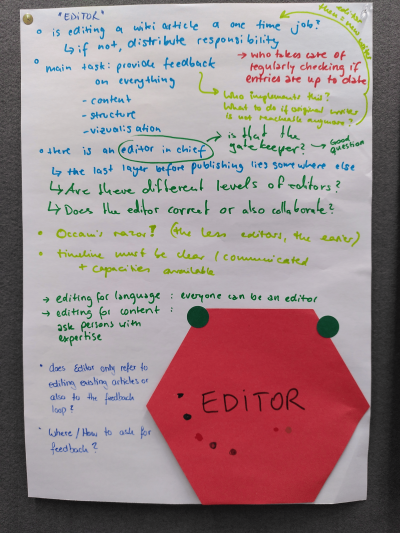 "EDITOR"
is editing a wiki article a one time job?
↳ if not, distribute responsibility
→ who takes care of
regularly checking if
entries are up to date
main task: provide feedback
on everything
- content
- structure
- vizualisation
Who implements this?
What to do if original writer
is not reachable anymore?
there is an editor in chief
→ is that the
gatekeeper? → Good
question
↳ the last layer before publishing lies somewhere else
↳ Are there different levels of editors?
↳ Does the editor correct or also collaborate?
Occam's razor! (the less editors, the easier)
timeline must be clear / communicated
+ capacities available
→ editing for language : everyone can be an editor
→ editing for content :
ask persons with
expertise
does Editor only refer to
editing existing articles or
also to the feedback
loop?
Where / How to ask for
feedback?
EDITOR